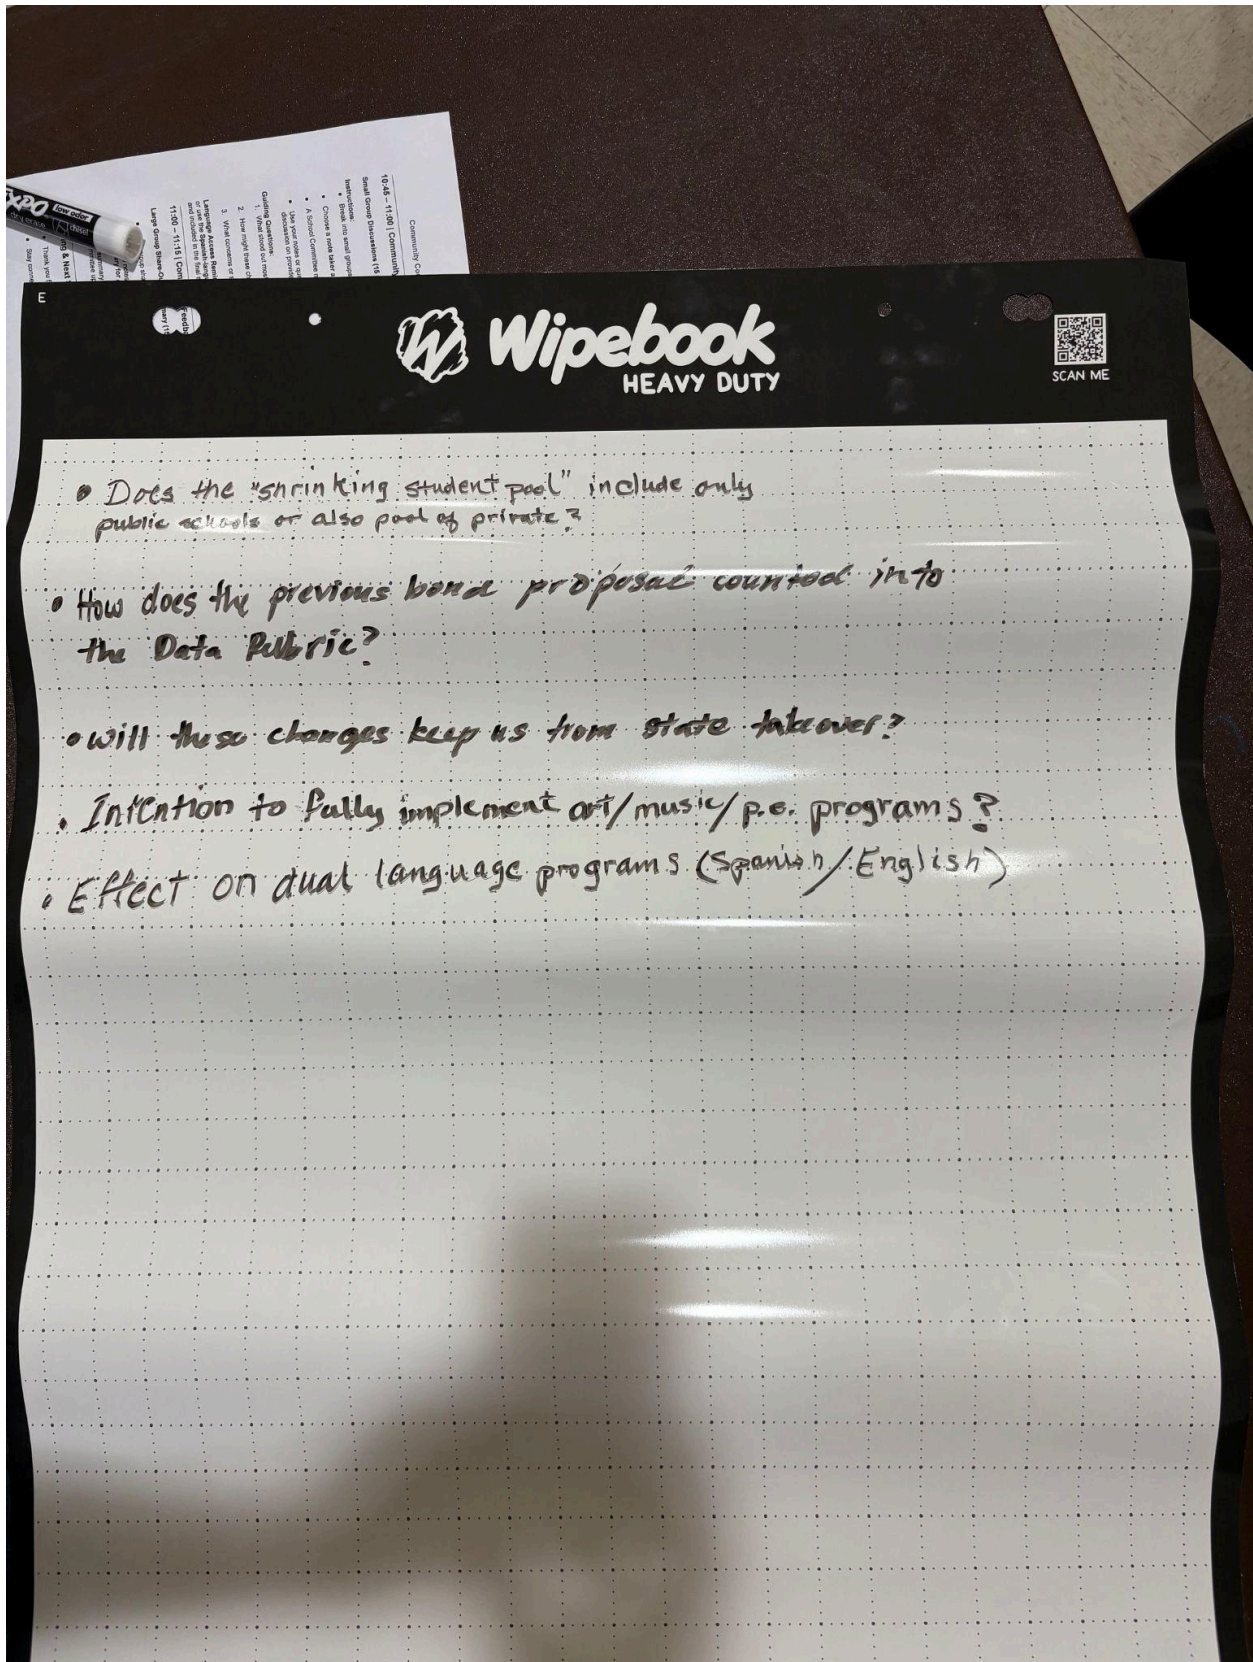 EXPO
low odor
chisel
Community
10:45 – 11:00 | Community
Small Group Discussions (15
Instructions:
• Break into small groups
• Choose a note taker
• A School Committee
• Use your notes or
discussion on
Guiding Questions:
1. What stood out
2. How might these
3. What concerns or
Language Access
or use the Spanish-
and included in the
11:00 – 11:15 |
Large Group
& Next
Thank you
Stay
E
Wipebook
HEAVY DUTY
SCAN ME
• Does the "shrinking student pool" include only
public schools or also pool of private?
• How does the previous bond proposal counted into
the Data Rubric?
• will these changes keep us from state takeover?
• Intention to fully implement art/music/p.e. programs?
• Effect on dual language programs (Spanish/English)